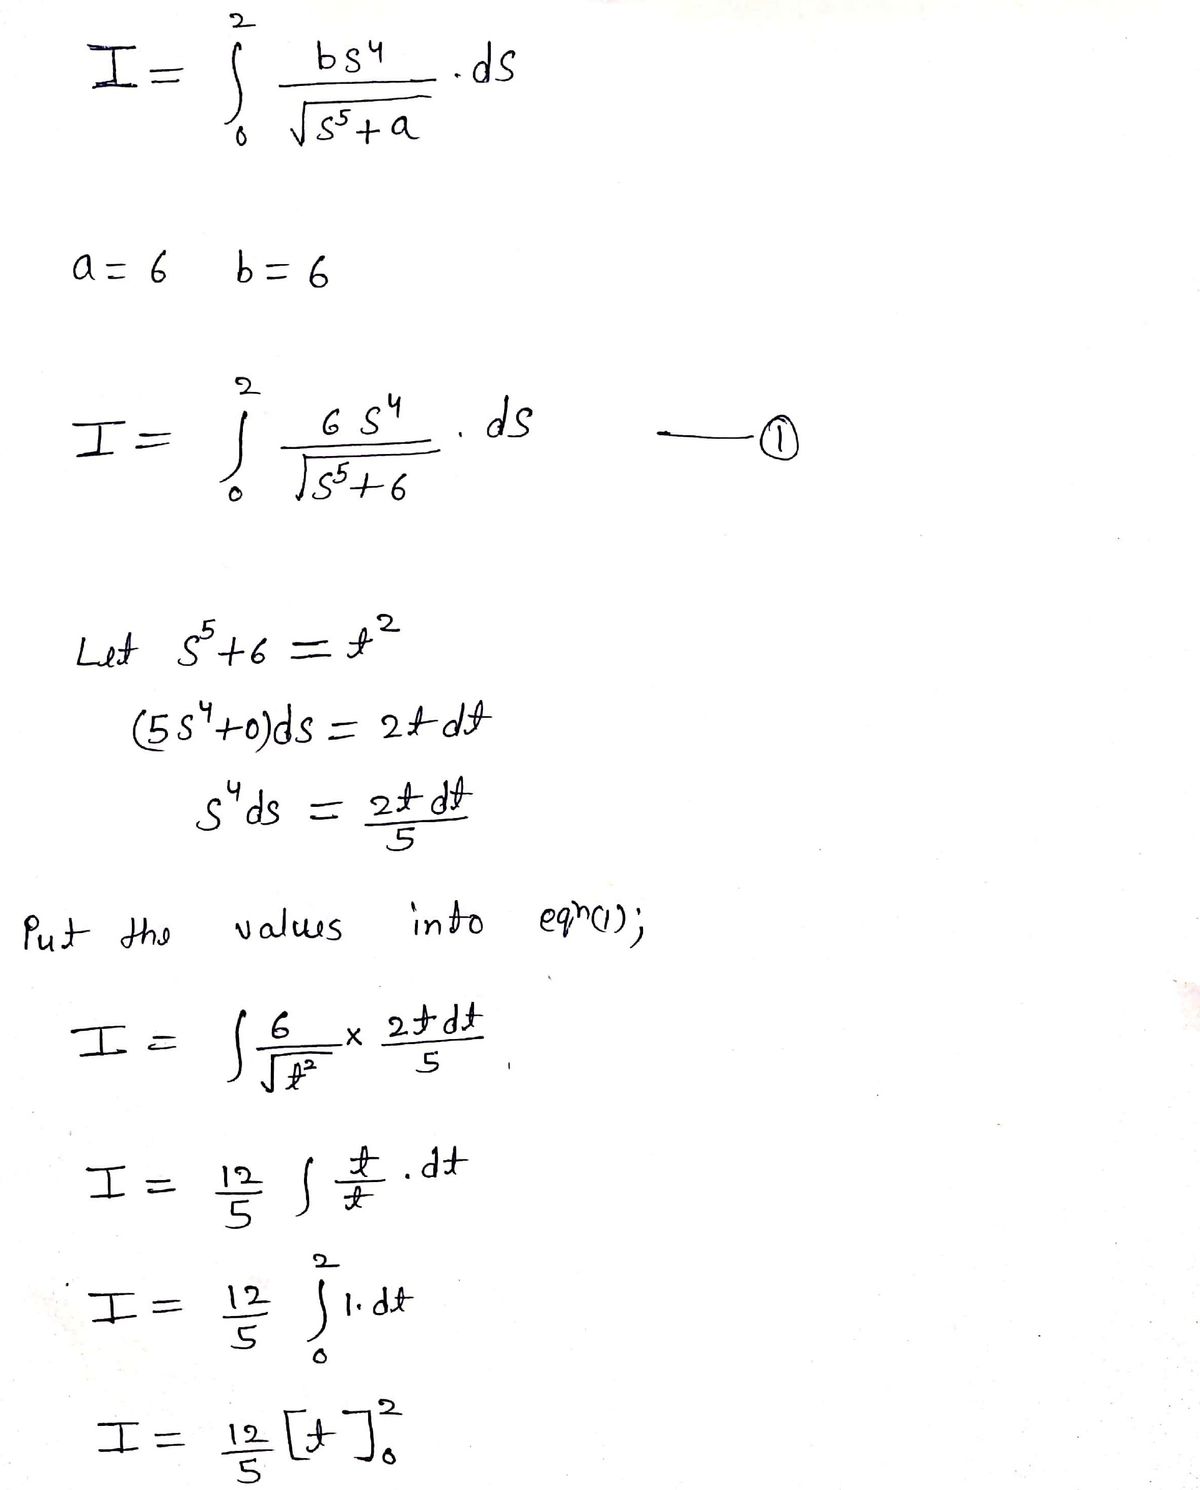 I = ∫₀² bs⁴/√(s⁵+a) . ds
a = 6 b = 6
I = ∫₀² 6s⁴/√(s⁵+6) . ds —①
Let s⁵+6 = t²
(5s⁴+0)ds = 2t dt
s⁴ds = 2t dt/5
Put the values into eqn(1);
I = ∫ 6/√t² × 2t dt/5
I = 12/5 ∫ t/t . dt
I = 12/5 ∫₀² 1. dt
I = 12/5 [t]₀²